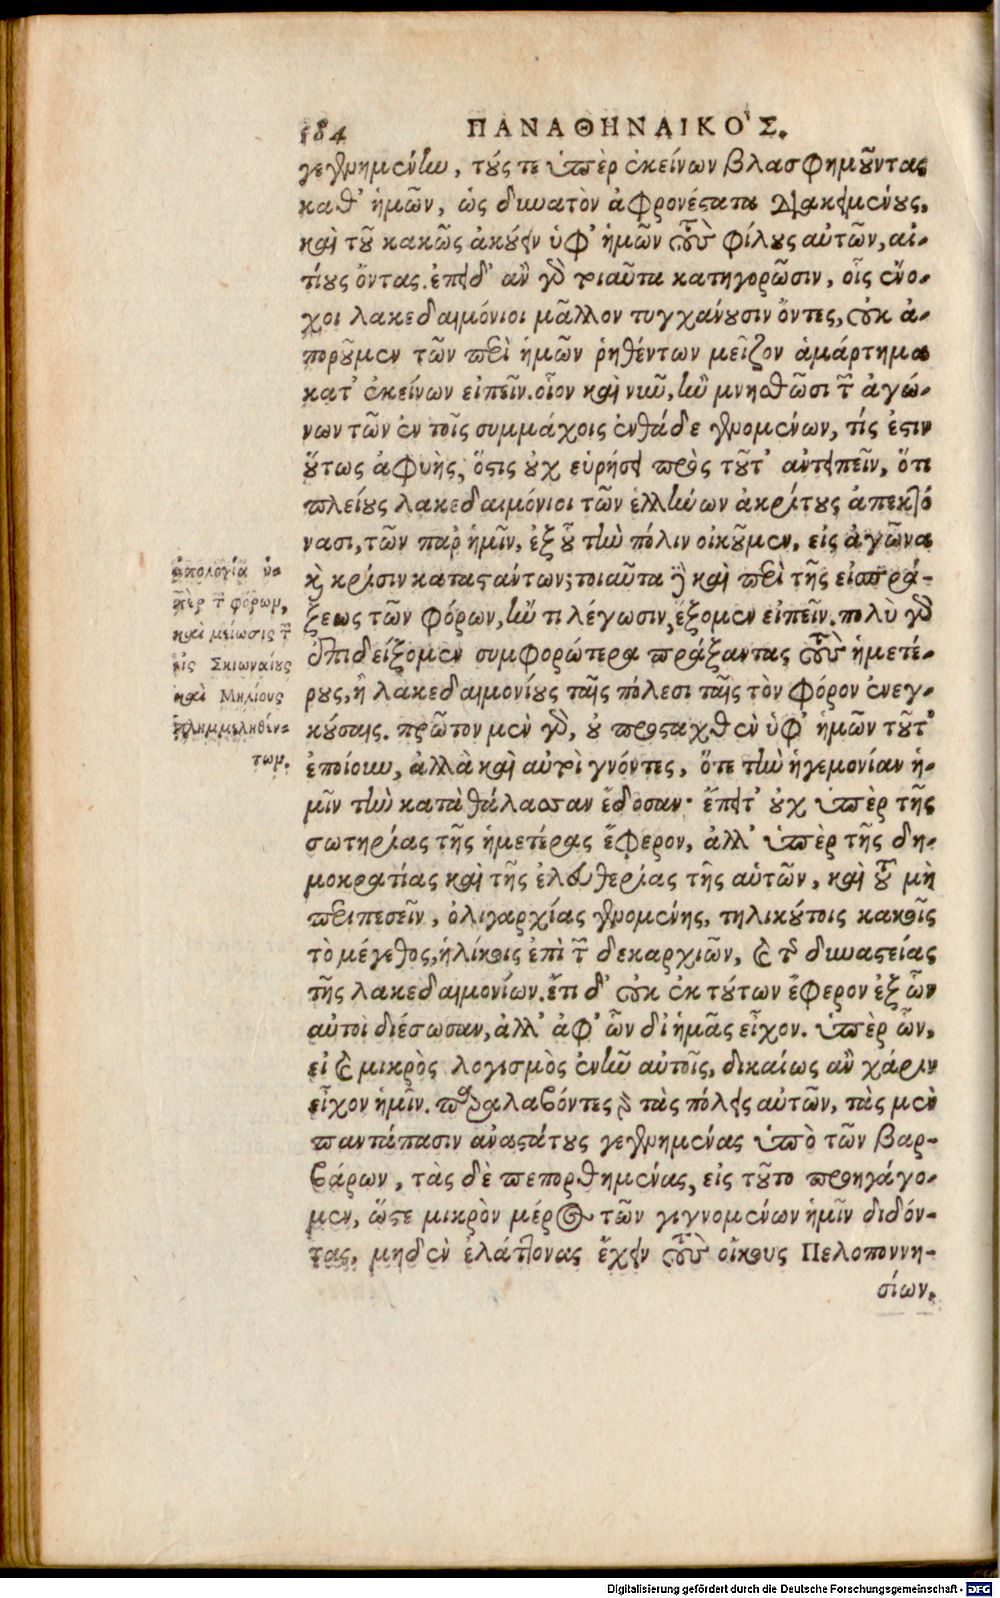 184 ΠΑΝΑΘΗΝΑΙΚΟ'Σ.
γεγενημένίω, τούς τε ὑπὲρ ἐκείνων βλασφημοῦντας
καθ' ἡμῶν, ὡς δυνατὸν ἀφρονέστατα διακειμένους,
καὶ τοῦ κακῶς ἀκούειν ὑφ' ἡμῶν τοὺς φίλους αὐτῶν, αἰ-
τίους ὄντας. ἐπειδ' ἂν γὰρ τοιαῦτα κατηγορῶσιν, οἷς ἔνο-
χοι λακεδαιμόνιοι μᾶλλον τυγχάνουσιν ὄντες, οὐκ ἀ-
ποροῦμεν τῶν περὶ ἡμῶν ῥηθέντων μεῖζον ἁμάρτημα
κατ' ἐκείνων εἰπεῖν. οἷον καὶ νῦν, ἢν μνησθῶσι τῶν ἀγώ-
νων τῶν ἐν τοῖς συμμάχοις ἐνθάδε γενομένων, τίς ἐστιν
οὕτως ἀφυὴς, ὅστις οὐχ εὑρήσει πρὸς τοῦτ' ἀντειπεῖν, ὅτι
πλείους λακεδαιμόνιοι τῶν ἑλλήνων ἀκρίτους ἀπεκτό
νασι, τῶν παρ' ἡμῖν, ἐξ οὗ τὴν πόλιν οἰκοῦμεν, εἰς ἀγῶνα
καὶ κρίσιν καταστάντων; τοιαῦτα δὲ καὶ περὶ τῆς εἰσπρά-
ξεως τῶν φόρων, ἤν τι λέγωσιν, ἕξομεν εἰπεῖν. πολὺ γὰρ
ἐπιδείξομεν συμφορώτερα πράξαντας τοὺς ἡμετέ-
ρους, ἢ λακεδαιμονίους ταῖς πόλεσι ταῖς τὸν φόρον ἐνεγ-
κούσαις. πρῶτον μὲν γὰρ, οὐ προσταχθὲν ὑφ' ἡμῶν τοῦτ'
ἐποίουν, ἀλλὰ καὶ αὐτοὶ γνόντες, ὅτε τὴν ἡγεμονίαν ἡ-
μῖν τὴν κατὰ θάλασσαν ἔδοσαν· ἔπειτ' οὐχ ὑπὲρ τῆς
σωτηρίας τῆς ἡμετέρας ἔφερον, ἀλλ' ὑπὲρ τῆς δη-
μοκρατίας καὶ τῆς ἐλευθερίας τῆς αὑτῶν, καὶ τοῦ μὴ
περιπεσεῖν, ὀλιγαρχίας γενομένης, τηλικούτοις κακοῖς
τὸ μέγεθος, ἡλίκοις ἐπὶ τῶν δεκαρχιῶν, καὶ τῆς δυναστείας
τῆς λακεδαιμονίων. ἔτι δ' οὐκ ἐκ τούτων ἔφερον ἐξ ὧν
αὐτοὶ διέσωσαν, ἀλλ' ἀφ' ὧν δι' ἡμᾶς εἶχον. ὑπὲρ ὧν,
εἰ καὶ μικρὸς λογισμὸς ἐνῆν αὐτοῖς, δικαίως ἂν χάριν
εἶχον ἡμῖν. παραλαβόντες γὰρ τὰς πόλεις αὐτῶν, τὰς μὲν
παντάπασιν ἀναστάτους γεγενημένας ὑπὸ τῶν βαρ-
βάρων, τὰς δὲ πεπορθημένας, εἰς τοῦτο προηγάγο-
μεν, ὥστε μικρὸν μέρος τῶν γιγνομένων ἡμῖν διδόν-
τας, μηδὲν ἐλάττονας ἔχειν τοὺς οἴκους Πελοποννη-
σίων.
ἀπολογία ὑ-
πὲρ τῶν φόρων,
καὶ μείωσις τῶν
εἰς Σκιωναίους
καὶ Μηλίους
πλημμεληθέν-
των.
Digitalisierung gefördert durch die Deutsche Forschungsgemeinschaft - DFG